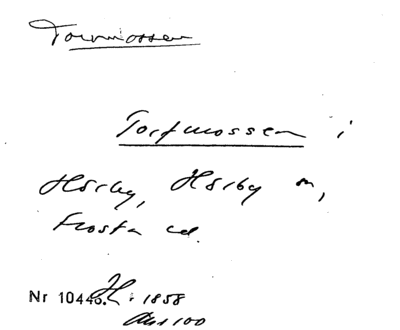 Torvmossen
Torfmossen i
Hörby, Hörby sn,
Frosta hd.
Nr 10446. H. : 1858
Avs 100